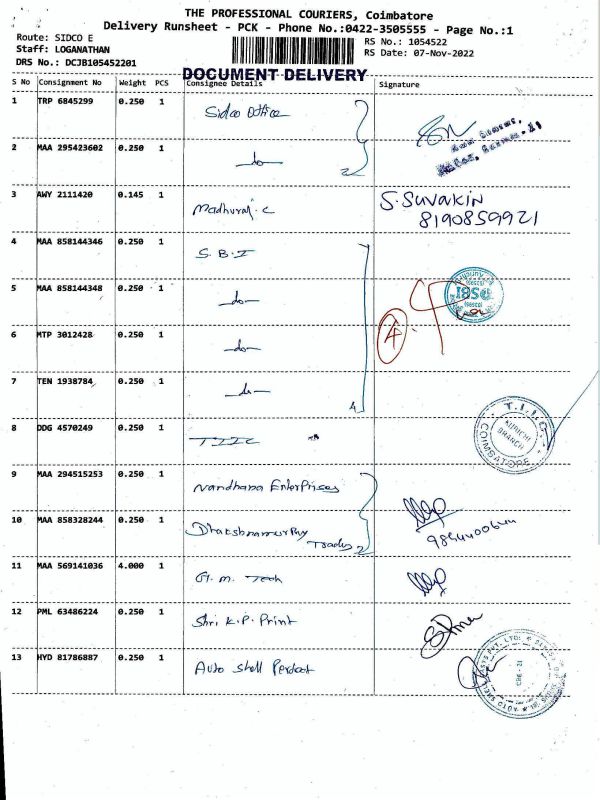 THE PROFESSIONAL COURIERS, Coimbatore
Delivery Runsheet - PCK - Phone No.:0422-3505555 - Page No.:1
Route: SIDCO E
Staff: LOGANATHAN
DRS No.: DCJB105452201
RS No.: 1054522
RS Date: 07-Nov-2022
DOCUMENT DELIVERY
S No Consignment No Weight PCS Consignee Details Signature
1 TRP 6845299 0.250 1 Sidco Office
2 MAA 295423602 0.250 1 -do-
2
3 AWY 2111420 0.145 1 Madhuraj.C S.Suvakin
8190859921
4 MAA 858144346 0.250 1 S.B.I
5 MAA 858144348 0.250 1 -do-
SBI
6 MTP 3012428 0.250 1 -do- 4
7 TEN 1938784 0.250 1 -do- 4
8 DDG 4570249 0.250 1 TIIC
T.I.I.C.
KURICHI BRANCH
COIMBATORE
9 MAA 294515253 0.250 1 Nandhana Enterprises
10 MAA 858328244 0.250 1 Dhakshnamurthy
Trades 2
11 MAA 569141036 4.000 1 G.M. Tech
12 PML 63486224 0.250 1 Shri K.P. Print
13 HYD 81786887 0.250 1 Auto Shell Perdect
CBE - 21